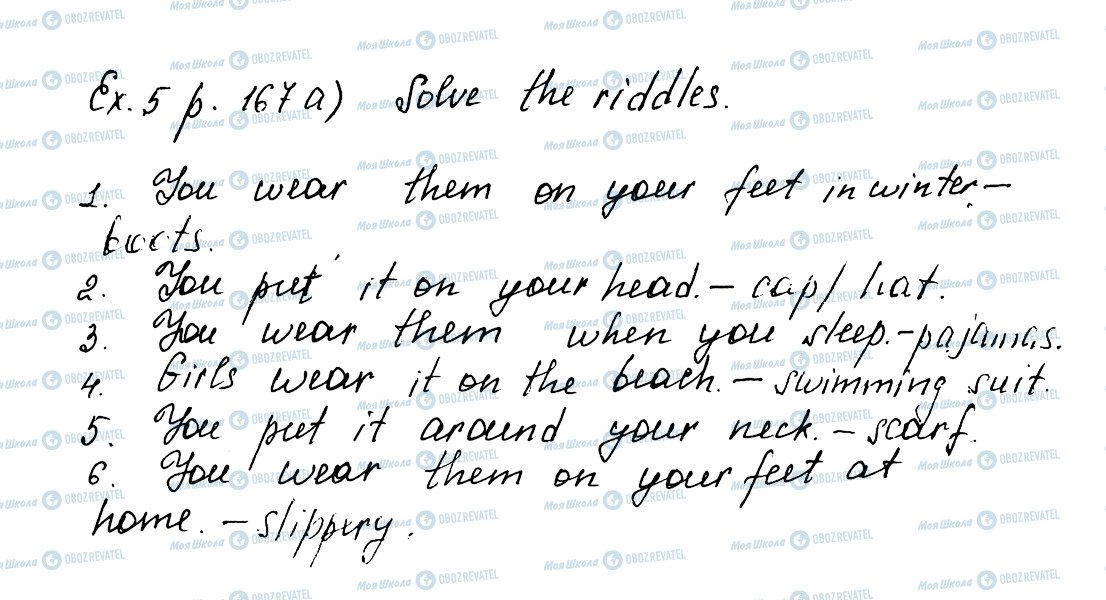 Ex. 5 p. 167 a) Solve the riddles.
1. You wear them on your feet in winter. –
boots.
2. You put it on your head. – cap/ hat.
3. You wear them when you sleep. – pajamas.
4. Girls wear it on the beach. – swimming suit.
5. You put it around your neck. – scarf.
6. You wear them on your feet at
home. – slippery.